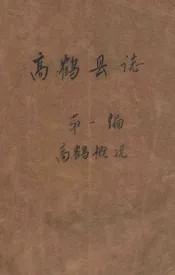 高鹤县誌
第一编
高鹤概况